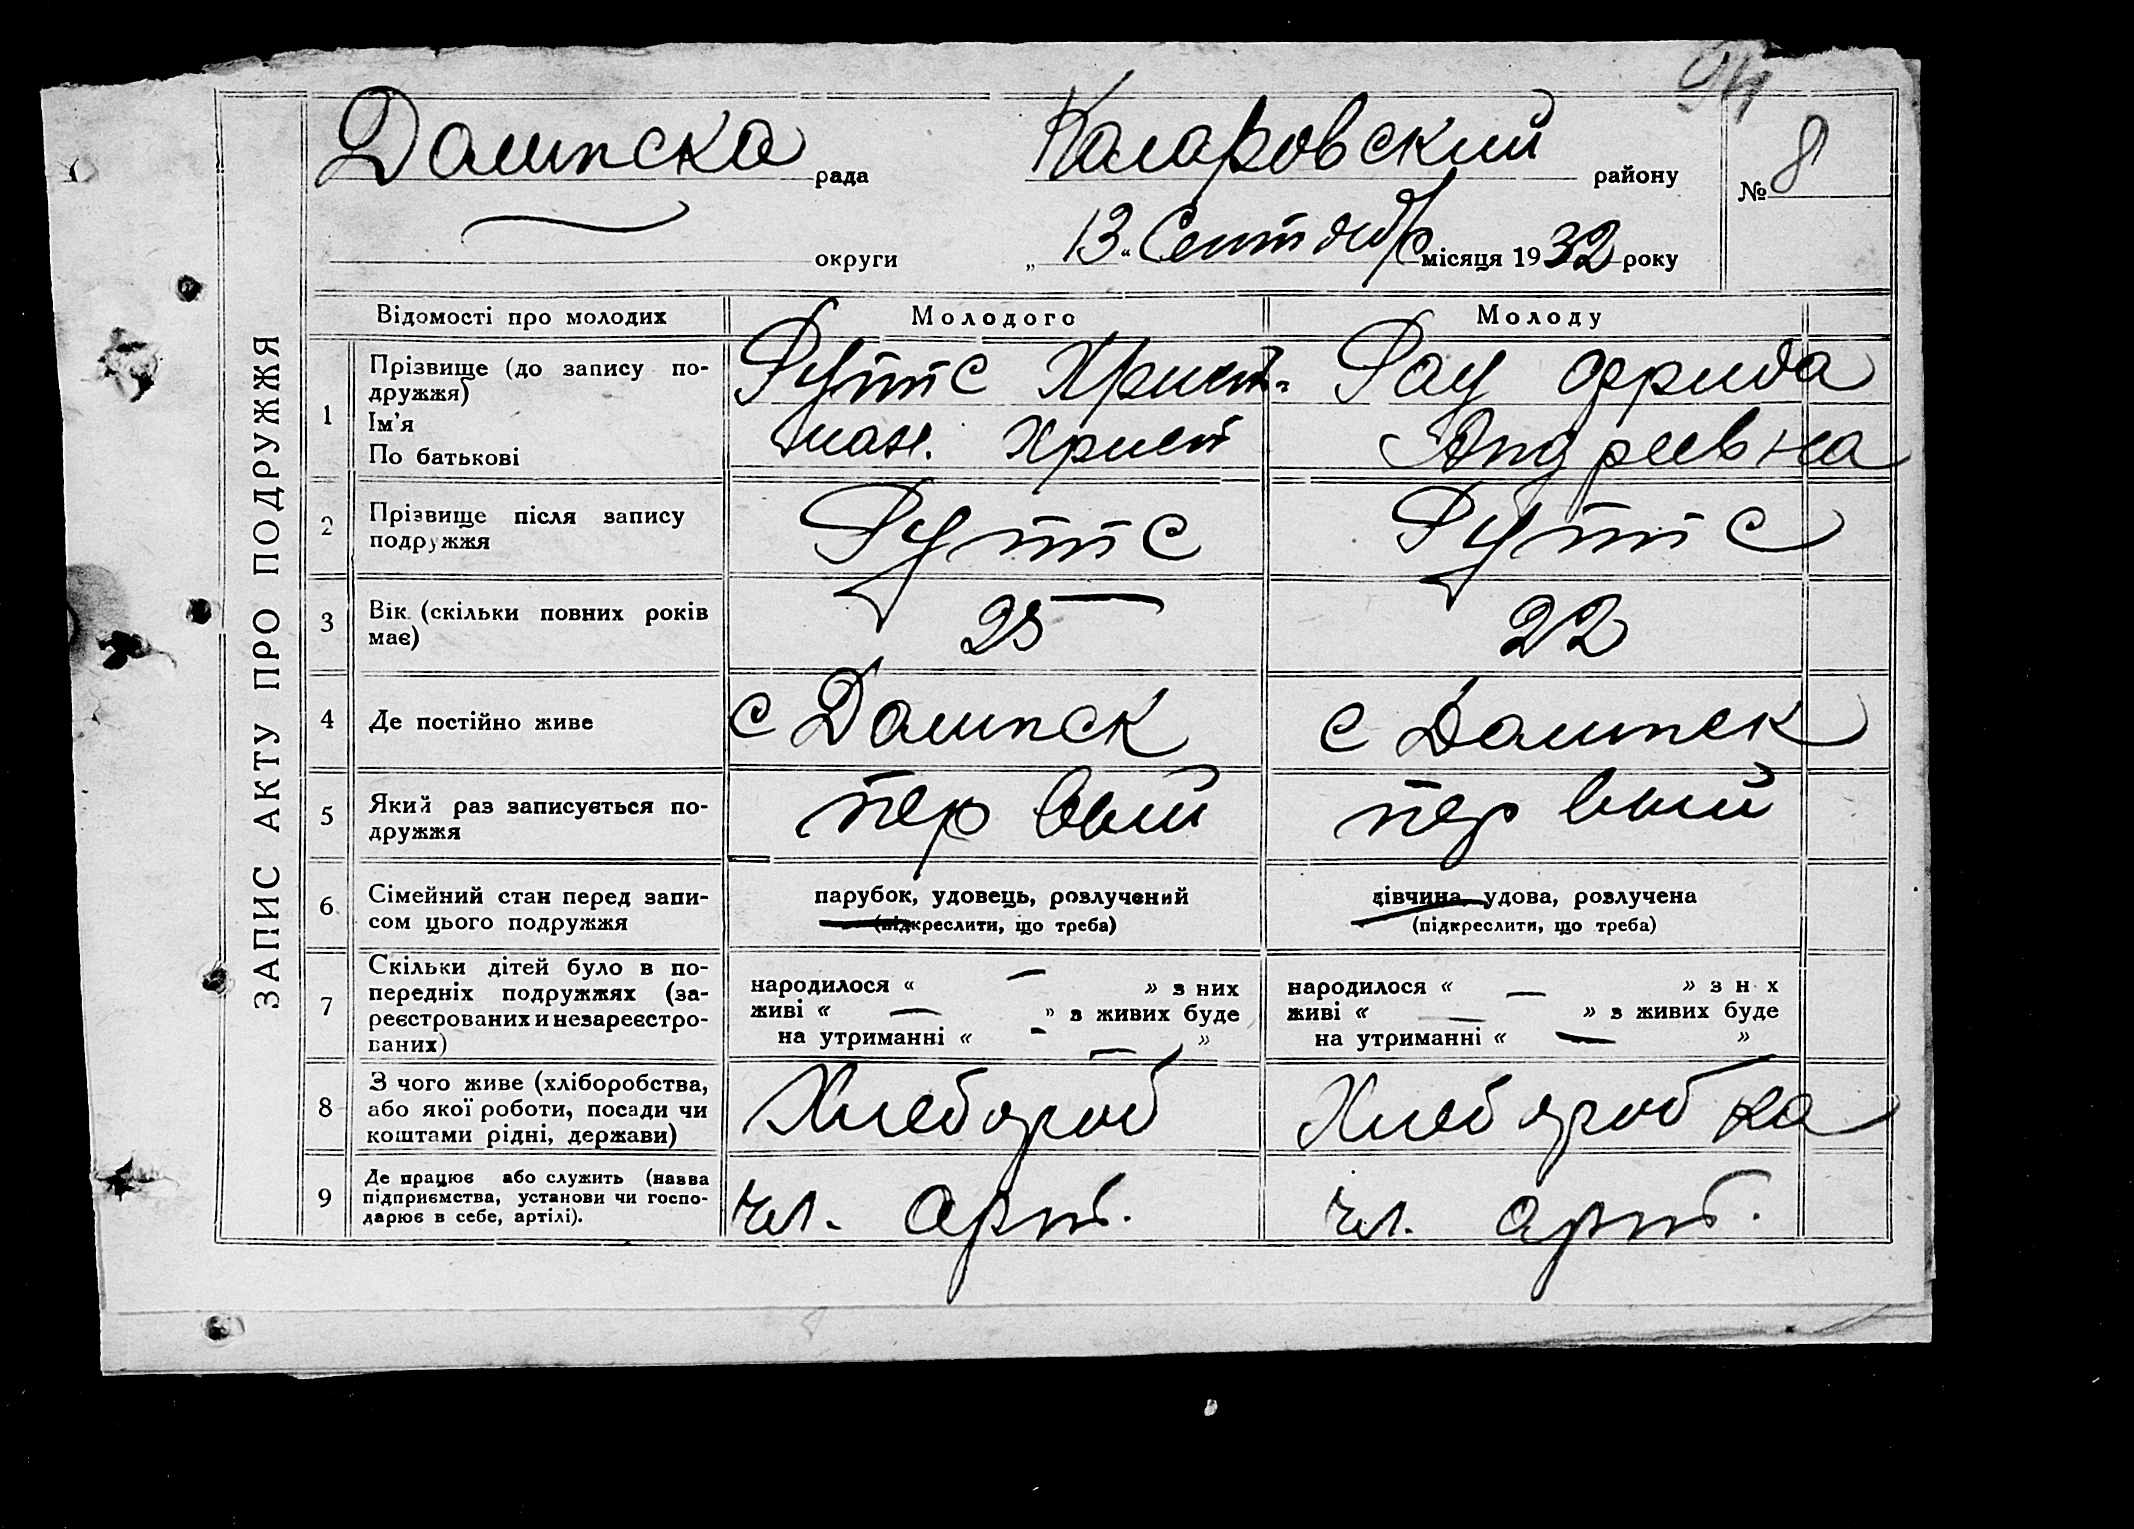 94
Даштска рада Коларовский району № 8
округи „13“ Сентябр місяця 1932 року
ЗАПИС АКТУ ПРО ПОДРУЖЖЯ
Відомості про молодих Молодого Молоду
1 Прізвище (до запису по-
дружжя)
Ім'я
По батькові
Руттс Христ-
иан. Христ
Рау Фрида
Андреевна
2 Прізвище після запису
подружжя
Руттс Руттс
3 Вік (скільки повних років
має)
25 22
4 Де постійно живе с с
5 Який раз записується по-
дружжя
первый первый
6 Сімейний стан перед запи-
сом цього подружжя
парубок, удовець, розлучений
(підкреслити, що треба)
дівчина, удова, розлучена
(підкреслити, що треба)
7 Скільки дітей було в по-
передніх подружжях (за-
реєстрованих и незареєстро-
ваних)
народилося « — » з них
живі « — » з живих буде
на утриманні « — »
народилося « — » з н х
живі « — » з живих буде
на утриманні « — »
8 З чого живе (хліборобства,
або якої роботи, посади чи
коштами рідні, держави)
Хлебороб Хлеборобка
9 Де працює або служить (назва
підприємства, установи чи госпо-
дарює в себе, артілі).
чл. арт. чл. арт.